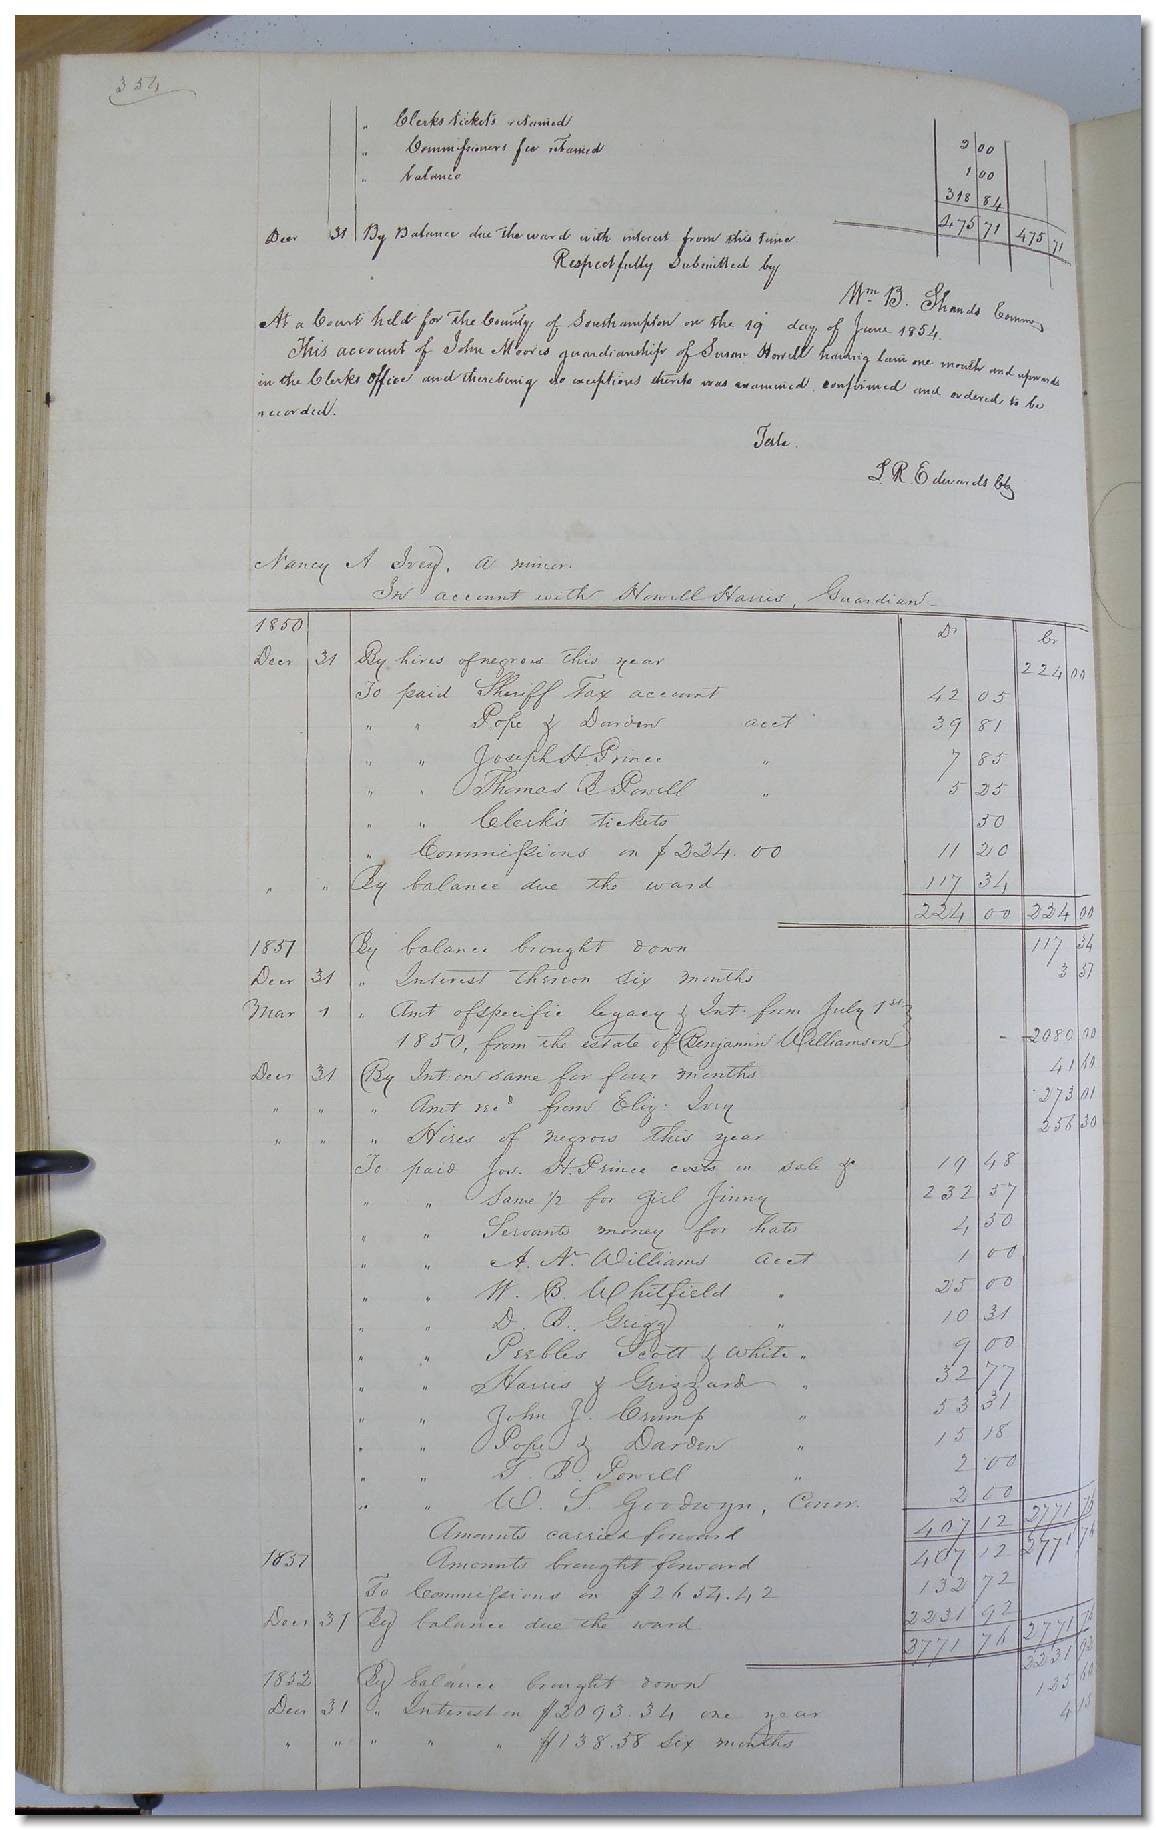 354
" Clerks tickets retained 2 00
" Commissioners fee retained 1 00
" balance 318 84
475 71 475 71
Decr 31 By Balance due the ward with interest from this time
Respectfully Submitted by
Wm B. Shands Commr
At a Court held for the County of Southampton on the 19 day of June 1854.
This account of John Moores guardianship of Susan Howell having lain one month and upwards
in the Clerks office and there being no exceptions thereto was examined confirmed and ordered to be
recorded.
Teste.
L. R. Edwards Clk
Nancy A Ivey, a minor.
In account with Howell Harris, Guardian
1850 Dr Cr
Decr 31 By hires of negroes this year 224 00
To paid Sheriff Tax account 42 05
" " Pope & Darden acct 39 81
" " Joseph H. Prince " 7 85
" " Thomas B Powell " 5 25
" " Clerk's tickets 50
" Commissions on $224.00 11 20
" " By balance due the ward 117 34
224 00 224 00
1851 By balance brought down 117 34
Decr 31 " Interest thereon six months 3 51
Mar 1 " Amt of specific legacy & Int. from July 1st
1850, from the estate of Benjamin Williamson 2080 00
Decr 31 By Int on same for four months 41 60
" " " Amt recd from Eliz. Ivey 273 01
" " " Hires of negroes this year 256 30
To paid Jos. H. Prince costs in sale &c 19 48
" " Same 1/2 for Girl Jinny 232 57
" " Servants money for hats 4 50
" " A. N. Williams acct 1 00
" " W. B. Whitfield " 25 00
" " D. B. Grigg " 10 31
" " Peebles Scott & White " 9 00
" " Harris & Grizzard " 32 77
" " John J. Crump " 53 31
" " Pope & Darden " 15 18
" " T. B. Powell " 2 00
" " W. S. Goodwyn, Comr. 2 00
Amounts carried forward 407 12 2771 76
1851 Amounts brought forward 407 12 2771 76
To Commissions on $2654.42 132 72
Decr 31 By balance due the ward 2231 92
2771 76 2771 76
1852 By balance brought down 2231 92
Decr 31 " Interest on $2093.34 one year 125 60
" " " " " $138.58 six months 4 15